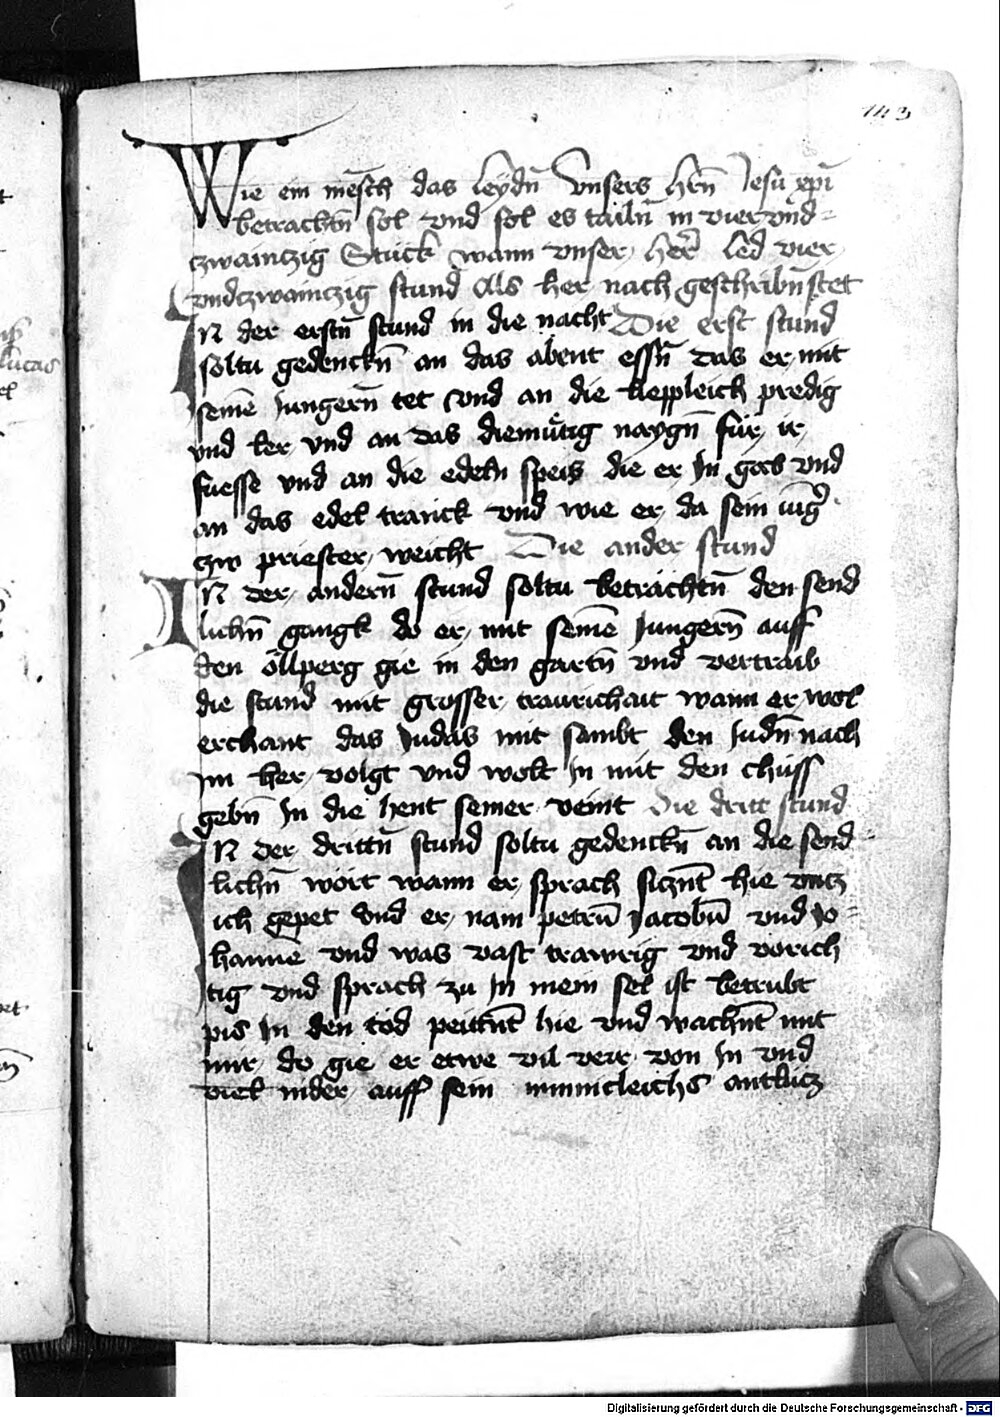 143
Wie ein mēsch das leydn̄ vnsers hrn̄ Jesu xp̄i
betrachtn̄ sol vnd sol es tailn̄ in viervnd=
czwainczig Stuck wann vnser herr̄ led vier
vndczwainczig stund Als her nach geschribn̄ stet
IN der erstn̄ stund in die nacht Die erst stund
soltu gedenckn̄ an das abent essn̄ das er mit
seinē Jungern̄ tet vnd an die lieppleich predig
vnd ler vnd an das diemütig naygn̄ für ir
fuesse vnd an die edeln speis die er In gab vnd
an das edel tranck vnd wie er da sein iūḡ
czw priester weicht Die ander stund
IN der andern̄ stund soltu betrachtn̄ den send
lichn̄ gangk do er mit seinē Jungern̄ auff
den öllperg gie in den gartn̄ vnd vertraib
die stund mit grosser traurichait wann er wol
erchant das Judas mit sambt den Judn̄ nach
im her volgt vnd wolt In mit den chuss
gebn̄ In die hent seiner veint Die dritt stund
IN der drittn̄ stund soltu gedenckn̄ an die send
lichn̄ wort wann er sprach siczn̄t hie vntz
ich gepet vnd er nam petrū Jacobū vnd Jo=
hannē vnd was vast trawrig vnd vorich
tig vnd sprach zu In mein sel ist betrubt
pis In den tod peittn̄t hie vnd wachn̄t mit
mir do gie er etwe vil verr von In vnd
viel nider auff sein minnicleichs antlucz
Lucas
Digitalisierung gefördert durch die Deutsche Forschungsgemeinschaft - DFG